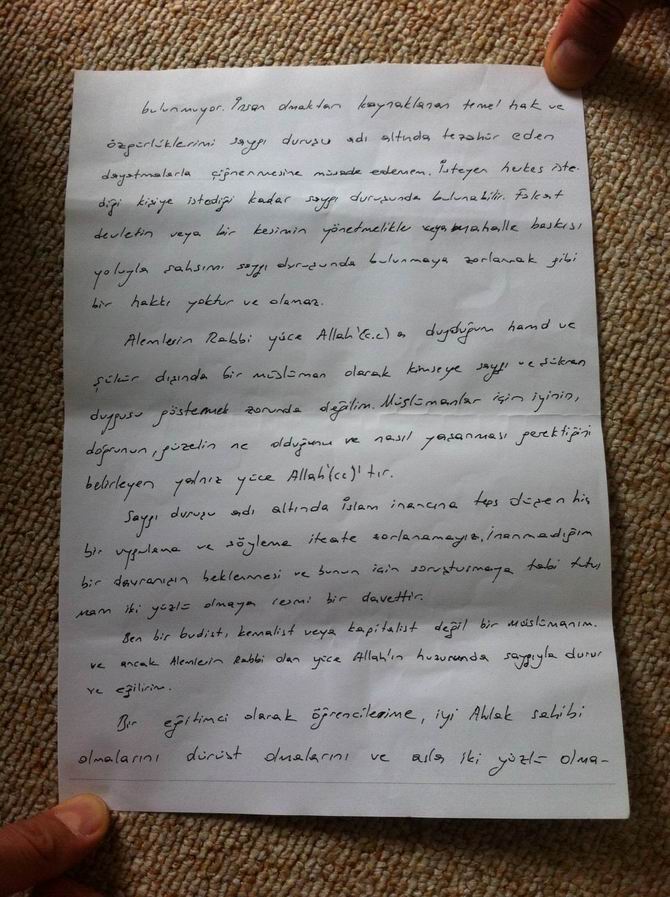 bulunmuyor. İnsan olmaktan kaynaklanan temel hak ve
özgürlüklerimi saygı duruşu adı altında tezahür eden
dayatmalarla çiğnenmesine müsade edemem. İsteyen herkes iste-
diği kişiye istediği kadar saygı duruşunda bulunabilir. Fakat
devletin veya bir kesimin yönetmelikle veya mahalle baskısı
yoluyla şahsımı saygı duruşunda bulunmaya zorlamak gibi
bir hakkı yoktur ve olamaz.
Alemlerin Rabbi yüce Allah'(c.c) a duyduğum hamd ve
şükür dışında bir müslüman olarak kimseye saygı ve şükran
duygusu göstermek zorunda değilim. Müslümanlar için iyinin,
doğrunun, güzelin ne olduğunu ve nasıl yaşanması gerektiğini
belirleyen yalnız yüce Allah'(cc)'tır.
Saygı duruşu adı altında İslam inancına ters düşen hiç
bir uygulama ve söyleme itaate zorlanamayız. İnanmadığım
bir davranışın beklenmesi ve bunun için soruşturmaya tabi tutul
mam iki yüzlü olmaya resmi bir davettir.
Ben bir budist, kemalist veya kapitalist değil bir Müslümanım.
ve ancak Alemlerin Rabbi olan yüce Allah'ın huzurunda saygıyla durur
ve eğilirim.
Bir eğitimci olarak öğrencilerime, iyi Ahlak sahibi
olmalarını dürüst olmalarını ve asla iki yüzlü olma-